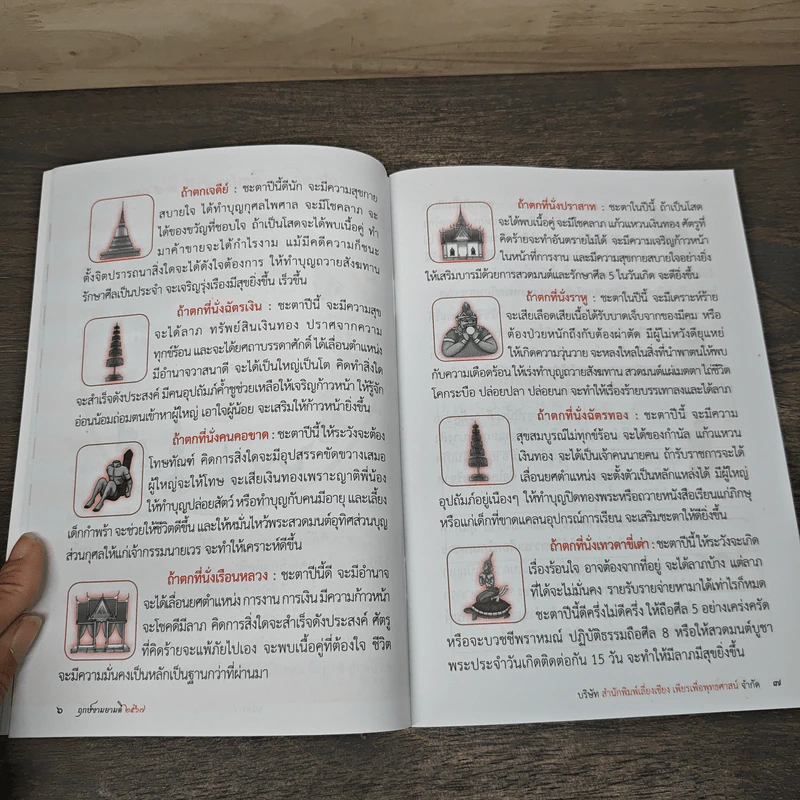 ถ้าตกเจดีย์ : ชะตาปีนี้ดีนัก จะมีความสุขกาย
สบายใจ ได้ทำบุญกุศลไพศาล จะมีโชคลาภ จะ
ได้ของขวัญที่ชอบใจ ถ้าเป็นโสดจะได้พบเนื้อคู่ ทำ
มาค้าขายจะได้กำไรงาม แม้มีคดีความก็ชนะ
ตั้งจิตปรารถนาสิ่งใดจะได้ดังใจต้องการ ให้ทำบุญถวายสังฆทาน
รักษาศีลเป็นประจำ จะเจริญรุ่งเรืองมีสุขยิ่งขึ้น เร็วขึ้น
ถ้าตกที่นั่งฉัตรเงิน : ชะตาปีนี้ จะมีความสุข
จะได้ลาภ ทรัพย์สินเงินทอง ปราศจากความ
ทุกข์ร้อน และจะได้ยศถาบรรดาศักดิ์ ได้เลื่อนตำแหน่ง
มีอำนาจวาสนาดี จะได้เป็นใหญ่เป็นโต คิดทำสิ่งใด
จะสำเร็จดังประสงค์ มีคนอุปถัมภ์ค้ำชูช่วยเหลือให้เจริญก้าวหน้า ให้รู้จัก
อ่อนน้อมถ่อมตนเข้าหาผู้ใหญ่ เอาใจผู้น้อย จะเสริมให้ก้าวหน้ายิ่งขึ้น
ถ้าตกที่นั่งคนคอขาด : ชะตาปีนี้ ให้ระวังจะต้อง
โทษทัณฑ์ คิดการสิ่งใดจะมีอุปสรรคขัดขวางเสมอ
ผู้ใหญ่จะให้โทษ จะเสียเงินทองเพราะญาติพี่น้อง
ให้ทำบุญปล่อยสัตว์ หรือทำบุญกับคนมีอายุ และเลี้ยง
เด็กกำพร้า จะช่วยให้ชีวิตดีขึ้น และให้หมั่นไหว้พระสวดมนต์อุทิศส่วนบุญ
ส่วนกุศลให้แก่เจ้ากรรมนายเวร จะทำให้เคราะห์ดีขึ้น
ถ้าตกที่นั่งเรือนหลวง : ชะตาปีนี้ดี จะมีอำนาจ
จะได้เลื่อนยศตำแหน่ง การงาน การเงิน มีความก้าวหน้า
จะโชคดีมีลาภ คิดการสิ่งใดจะสำเร็จดังประสงค์ ศัตรู
ที่คิดร้ายจะแพ้ภัยไปเอง จะพบเนื้อคู่ที่ต้องใจ ชีวิต
จะมีความมั่นคงเป็นหลักเป็นฐานกว่าที่ผ่านมา
๖ ฤกษ์งามยามดี ๒๕๖๗
ถ้าตกที่นั่งปราสาท : ชะตาในปีนี้ ถ้าเป็นโสด
จะได้พบเนื้อคู่ จะมีโชคลาภ แก้วแหวนเงินทอง ศัตรูที่
คิดร้ายจะทำอันตรายไม่ได้ จะมีความเจริญก้าวหน้า
ในหน้าที่การงาน และมีความสุขกายสบายใจอย่างยิ่ง
ให้เสริมบารมีด้วยการสวดมนต์และรักษาศีล 5 ในวันเกิด จะดียิ่งขึ้น
ถ้าตกที่นั่งราหู : ชะตาในปีนี้ จะมีเคราะห์ร้าย
จะเสียเลือดเสียเนื้อได้รับบาดเจ็บจากของมีคม หรือ
ต้องป่วยหนักถึงกับต้องผ่าตัด มีผู้ไม่หวังดียุแหย่
ให้เกิดความวุ่นวาย จะหลงใหลในสิ่งที่นำพาตนให้พบ
กับความเดือดร้อน ให้เร่งทำบุญถวายสังฆทาน สวดมนต์แผ่เมตตา ไถ่ชีวิต
โคกระบือ ปล่อยปลา ปล่อยนก จะทำให้เรื่องร้ายบรรเทาลงและได้ลาภ
ถ้าตกที่นั่งฉัตรทอง : ชะตาปีนี้ จะมีความ
สุขสมบูรณ์ไม่ทุกข์ร้อน จะได้ของกำนัล แก้วแหวน
เงินทอง จะได้เป็นเจ้าคนนายคน ถ้ารับราชการจะได้
เลื่อนยศตำแหน่ง จะตั้งตัวเป็นหลักแหล่งได้ มีผู้ใหญ่
อุปถัมภ์อยู่เนืองๆ ให้ทำบุญปิดทองพระหรือถวายหนังสือเรียนแก่ภิกษุ
หรือแก่เด็กที่ขาดแคลนอุปกรณ์การเรียน จะเสริมชะตาให้ดียิ่งขึ้น
ถ้าตกที่นั่งเทวดาขี่เต่า : ชะตาปีนี้ ให้ระวังจะเกิด
เรื่องร้อนใจ อาจต้องจากที่อยู่ จะได้ลาภบ้าง แต่ลาภ
ที่ได้จะไม่มั่นคง รายรับรายจ่ายหามาได้เท่าไรก็หมด
ชะตาปีนี้ดีครึ่งไม่ดีครึ่ง ให้ถือศีล 5 อย่างเคร่งครัด
หรือจะบวชชีพราหมณ์ ปฏิบัติธรรมถือศีล 8 หรือให้สวดมนต์บูชา
พระประจำวันเกิดติดต่อกัน 15 วัน จะทำให้มีลาภมีสุขยิ่งขึ้น
บริษัท สำนักพิมพ์เลี่ยงเชียง เพียรเพื่อพุทธศาสน์ จำกัด ๗